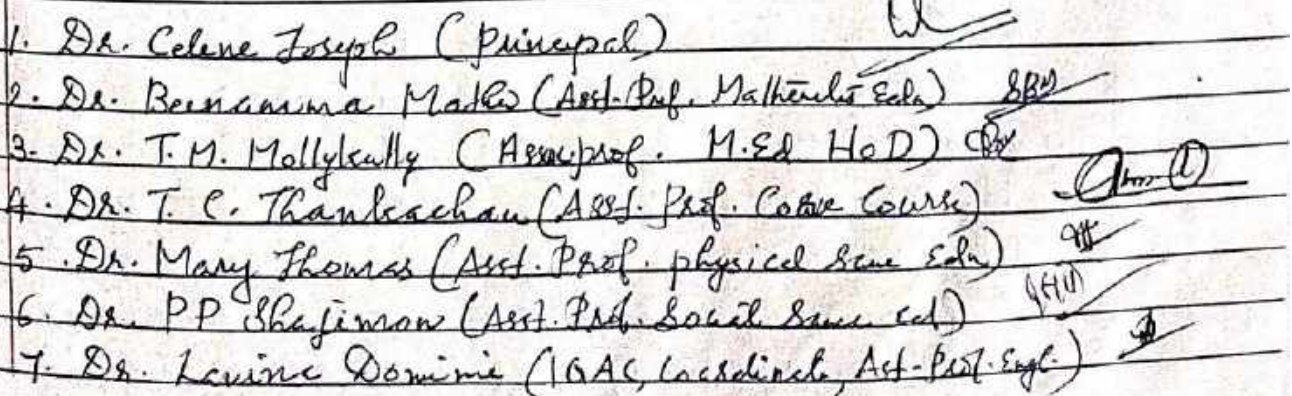 1. Dr. Celene Joseph (Principal)
2. Dr. Beenamma Mathew (Asst. Prof. Mathematics Edn)
3. Dr. T.M. Mollykutty (Asso. prof. M.Ed HoD)
4. Dr. T. C. Thankachan (Asst. Prof. Core Course)
5. Dr. Mary Thomas (Asst. Prof. physical Scne Edn)
6. Dr. PP Shajimon (Asst. Prof. Social Scne ed)
7. Dr. Lavina Dominic (IQAC, Coordinator, Ast-Prof. Engl.)